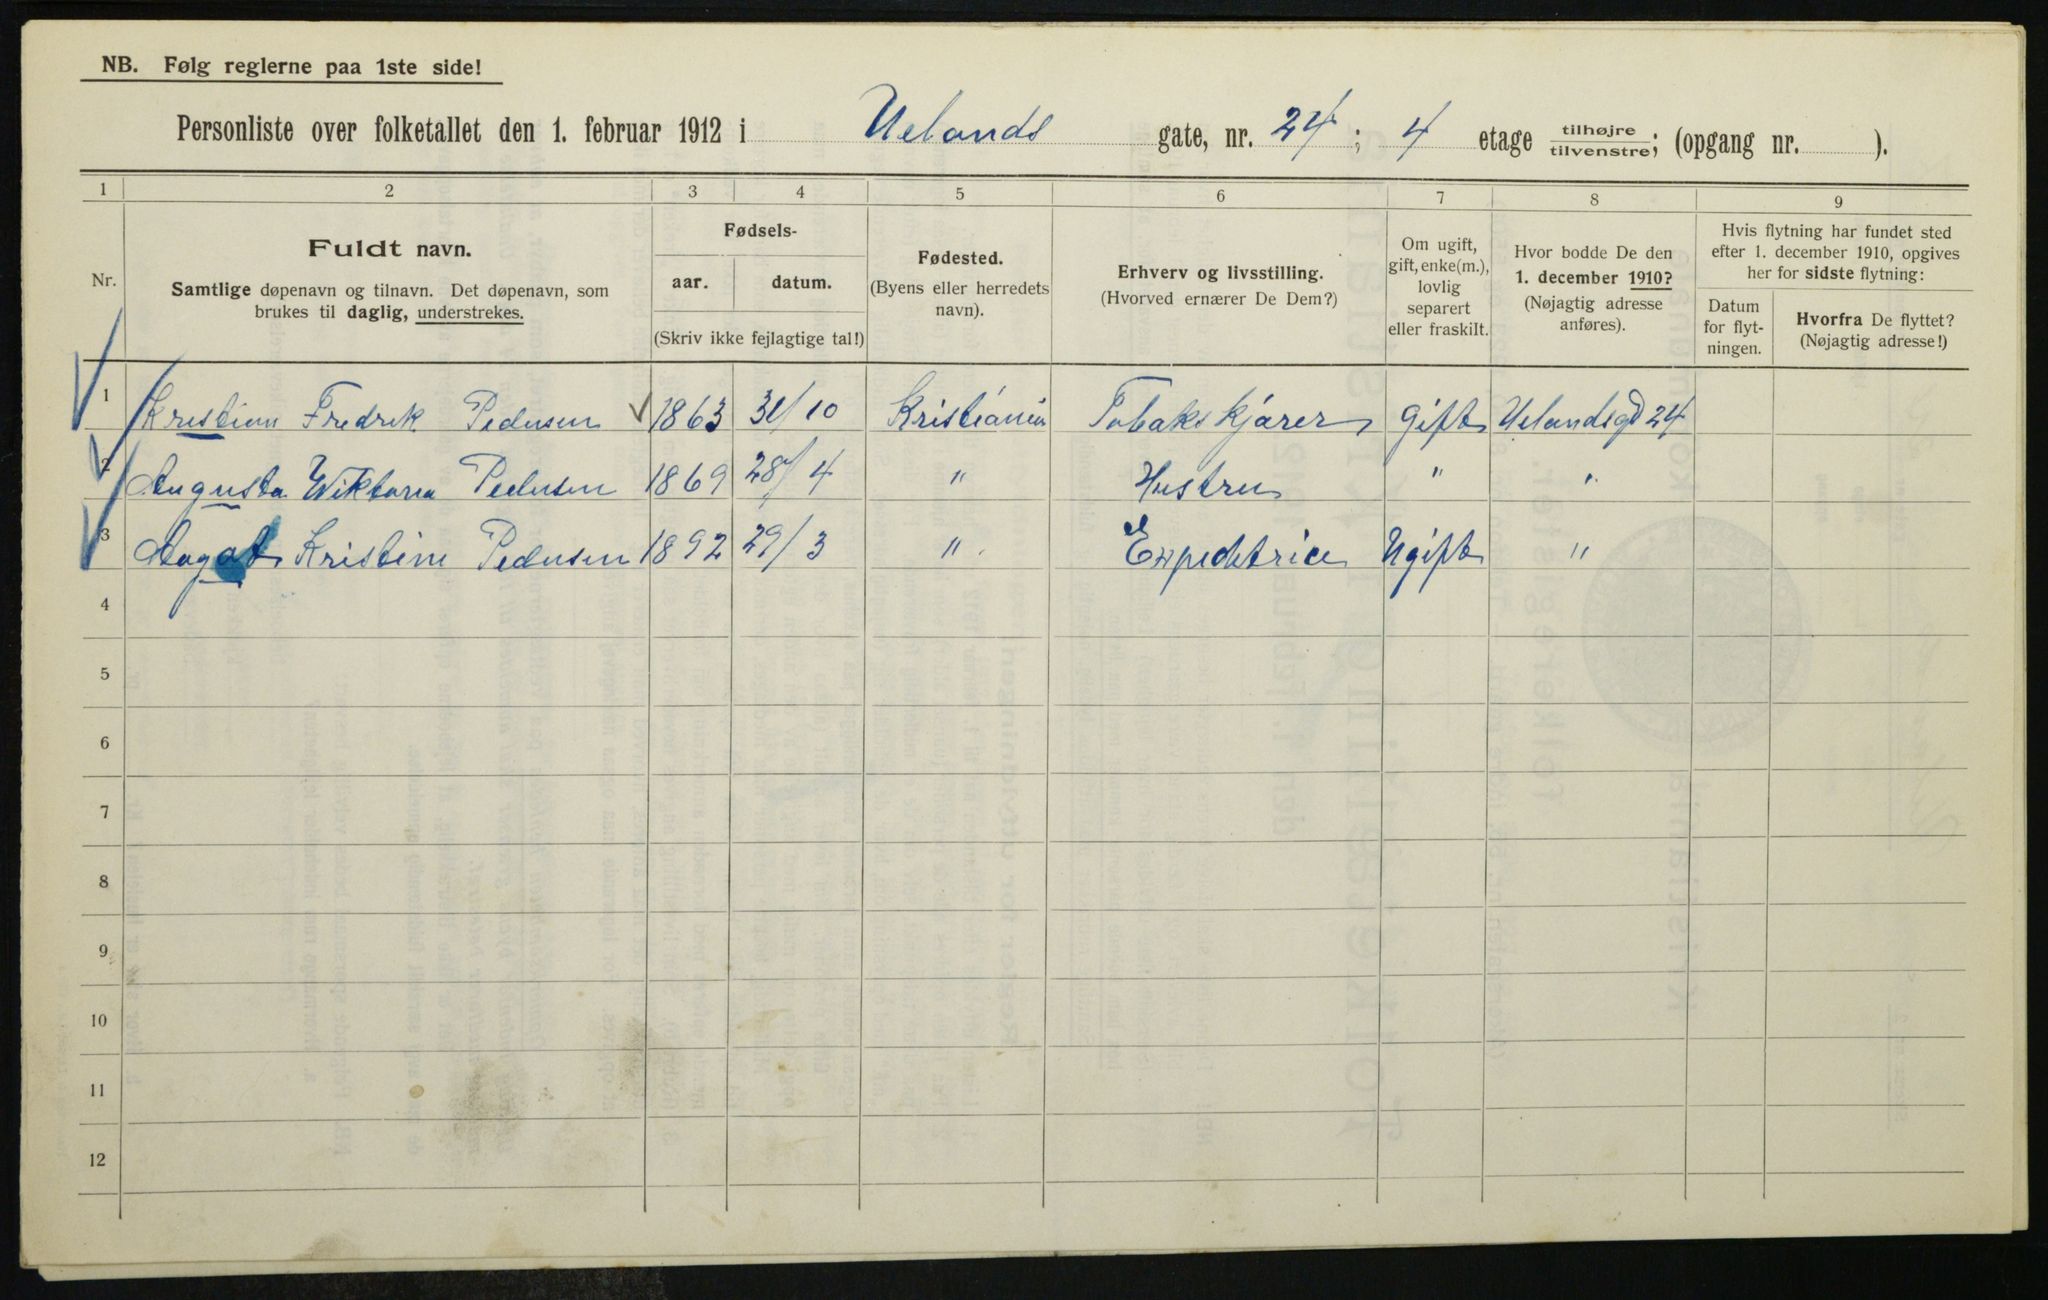 NB. Følg reglerne paa 1ste side!
Personliste over folketallet den 1. februar 1912 i Uelands gate, nr. 24 ; 4 etage tilhøjre tilvenstre; (opgang nr. ).
1 2 3 4 5 6 7 8 9
Nr.
Fuldt navn.
Samtlige døpenavn og tilnavn. Det døpenavn, som
brukes til daglig, understrekes.
Fødsels-
aar. datum.
(Skriv ikke fejlagtige tal!)
Fødested.
(Byens eller herredets
navn).
Erhverv og livsstilling.
(Hvorved ernærer De Dem?)
Om ugift,
gift, enke(m.),
lovlig
separert
eller fraskilt.
Hvor bodde De den
1. december 1910?
(Nøjagtig adresse
anføres).
Hvis flytning har fundet sted
efter 1. december 1910, opgives
her for sidste flytning:
Datum
for flyt-
ningen.
Hvorfra De flyttet?
(Nøjagtig adresse!)
1 Kristian Fredrik Pedersen 1863 31/10 Kristiania Tobakskjører Gift Uelandsgd 24
2 Augusta Wiktoria Pedersen 1869 28/4 " Hustru " "
3 Kristine Pedersen 1892 29/3 " Expeditrice Ugift "
4
5
6
7
8
9
10
11
12